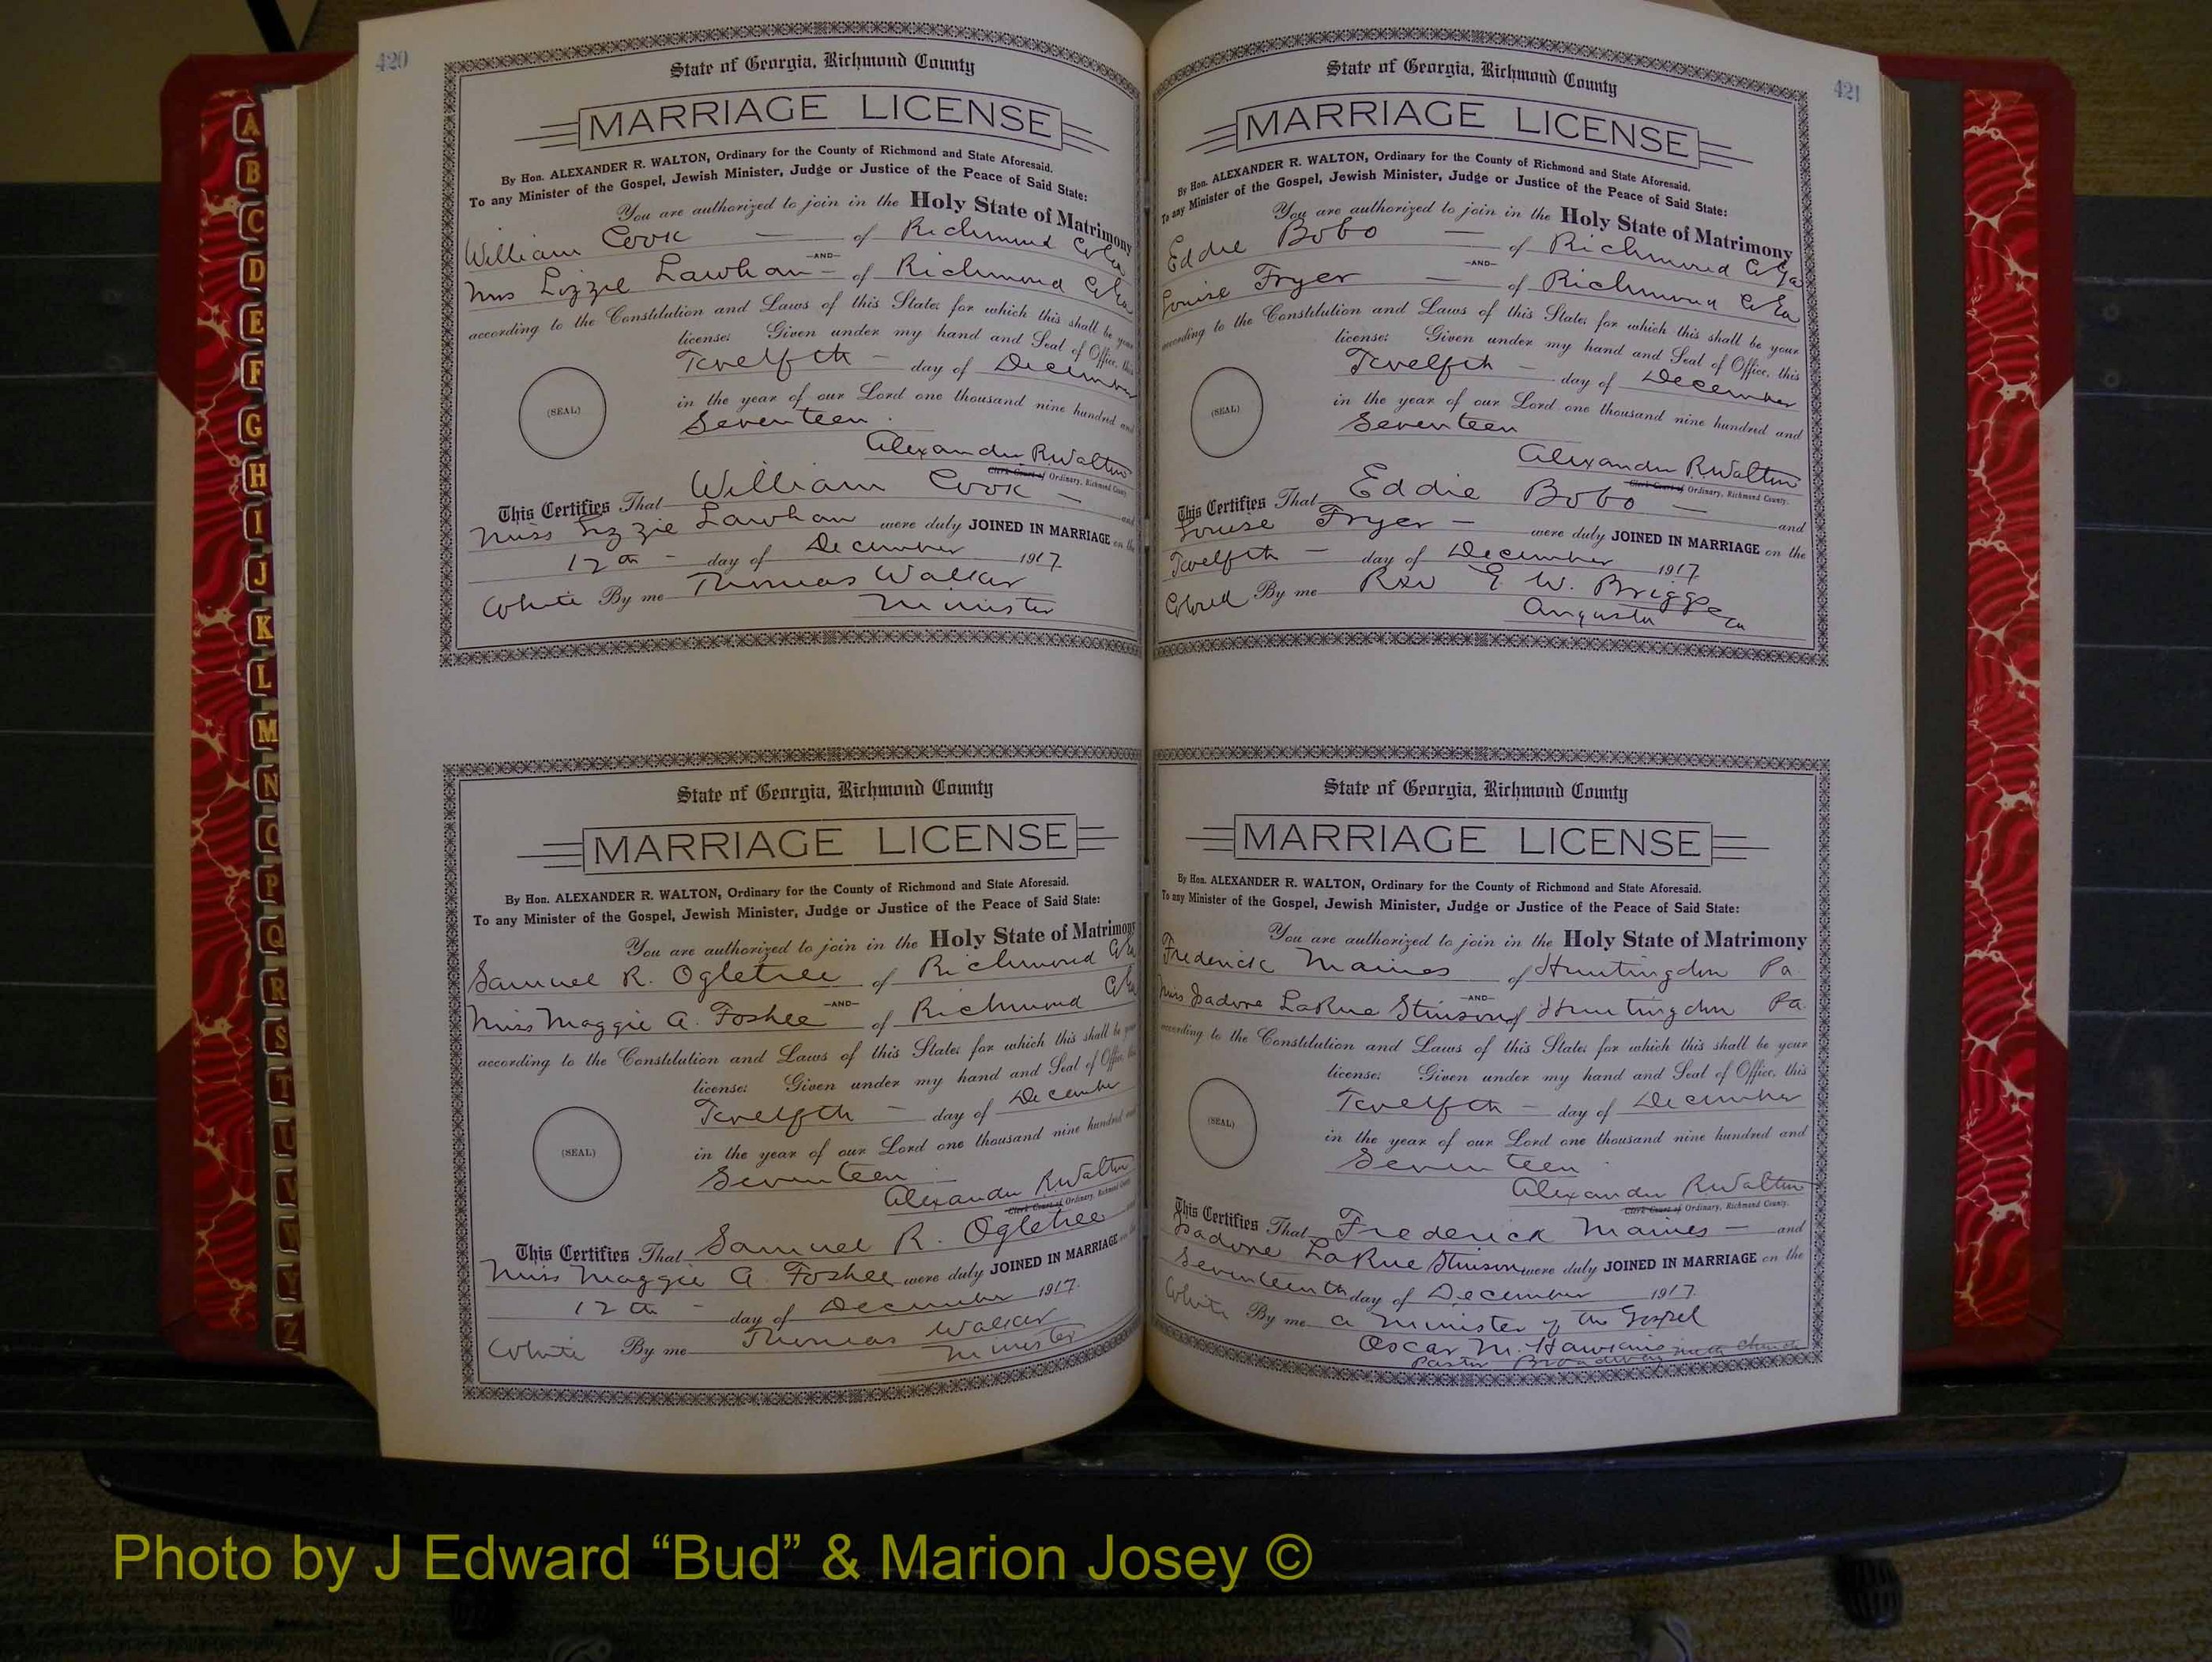 420
State of Georgia, Richmond County
MARRIAGE LICENSE
By Hon. ALEXANDER R. WALTON, Ordinary for the County of Richmond and State Aforesaid.
To any Minister of the Gospel, Jewish Minister, Judge or Justice of the Peace of Said State:
You are authorized to join in the Holy State of Matrimony
William Cook — of Richmond Co Ga
—AND—
Miss Lizzie Lawhan — of Richmond Co Ga
according to the Constitution and Laws of this State, for which this shall be your
license: Given under my hand and Seal of Office, this
Twelfth — day of December
(SEAL)
in the year of our Lord one thousand nine hundred and
Seventeen
Alexander R Walton
Clerk Court of Ordinary, Richmond County
This Certifies That William Cook — and
Miss Lizzie Lawhan were duly JOINED IN MARRIAGE on the
12th — day of December 1917
White By me Thomas Walker
Minister
State of Georgia, Richmond County
MARRIAGE LICENSE
By Hon. ALEXANDER R. WALTON, Ordinary for the County of Richmond and State Aforesaid.
To any Minister of the Gospel, Jewish Minister, Judge or Justice of the Peace of Said State:
You are authorized to join in the Holy State of Matrimony
Samuel R. Ogletree of Richmond Co Ga
—AND—
Miss Maggie A. Foshee of Richmond Co Ga
according to the Constitution and Laws of this State, for which this shall be your
license: Given under my hand and Seal of Office, this
Twelfth — day of December
(SEAL)
in the year of our Lord one thousand nine hundred and
Seventeen
Alexander R Walton
Clerk Court of Ordinary, Richmond County
This Certifies That Samuel R. Ogletree and
Miss Maggie A. Foshee were duly JOINED IN MARRIAGE on the
12th — day of December 1917.
White By me Thomas Walker
Minister
421
State of Georgia, Richmond County
MARRIAGE LICENSE
By Hon. ALEXANDER R. WALTON, Ordinary for the County of Richmond and State Aforesaid.
To any Minister of the Gospel, Jewish Minister, Judge or Justice of the Peace of Said State:
You are authorized to join in the Holy State of Matrimony
Eddie Bobo — of Richmond Co Ga
—AND—
Louise Fryer — of Richmond Co Ga
according to the Constitution and Laws of this State, for which this shall be your
license: Given under my hand and Seal of Office, this
Twelfth — day of December
(SEAL)
in the year of our Lord one thousand nine hundred and
Seventeen
Alexander R Walton
Clerk Court of Ordinary, Richmond County.
This Certifies That Eddie Bobo — and
Louise Fryer — were duly JOINED IN MARRIAGE on the
Twelfth — day of December 1917.
Colored By me Rev E. W. Briggs
Augusta Ga
State of Georgia, Richmond County
MARRIAGE LICENSE
By Hon. ALEXANDER R. WALTON, Ordinary for the County of Richmond and State Aforesaid.
To any Minister of the Gospel, Jewish Minister, Judge or Justice of the Peace of Said State:
You are authorized to join in the Holy State of Matrimony
Frederick Maines of Huntingdon Pa.
—AND—
Miss Isadore LaRue Stinson of Huntingdon Pa.
according to the Constitution and Laws of this State, for which this shall be your
license: Given under my hand and Seal of Office, this
Twelfth — day of December
(SEAL)
in the year of our Lord one thousand nine hundred and
Seventeen
Alexander R Walton
Clerk Court of Ordinary, Richmond County.
This Certifies That Frederick Maines — and
Isadore LaRue Stinson were duly JOINED IN MARRIAGE on the
Seventeenth day of December 1917.
White By me a Minister of the Gospel
Oscar M. Hawkins
Pastor Broadway Church
A
B
C
D
E
F
G
H
I
J
K
L
M
N
O
P
Q
R
S
T
U
V
W
Y
Z
Photo by J Edward “Bud” & Marion Josey ©